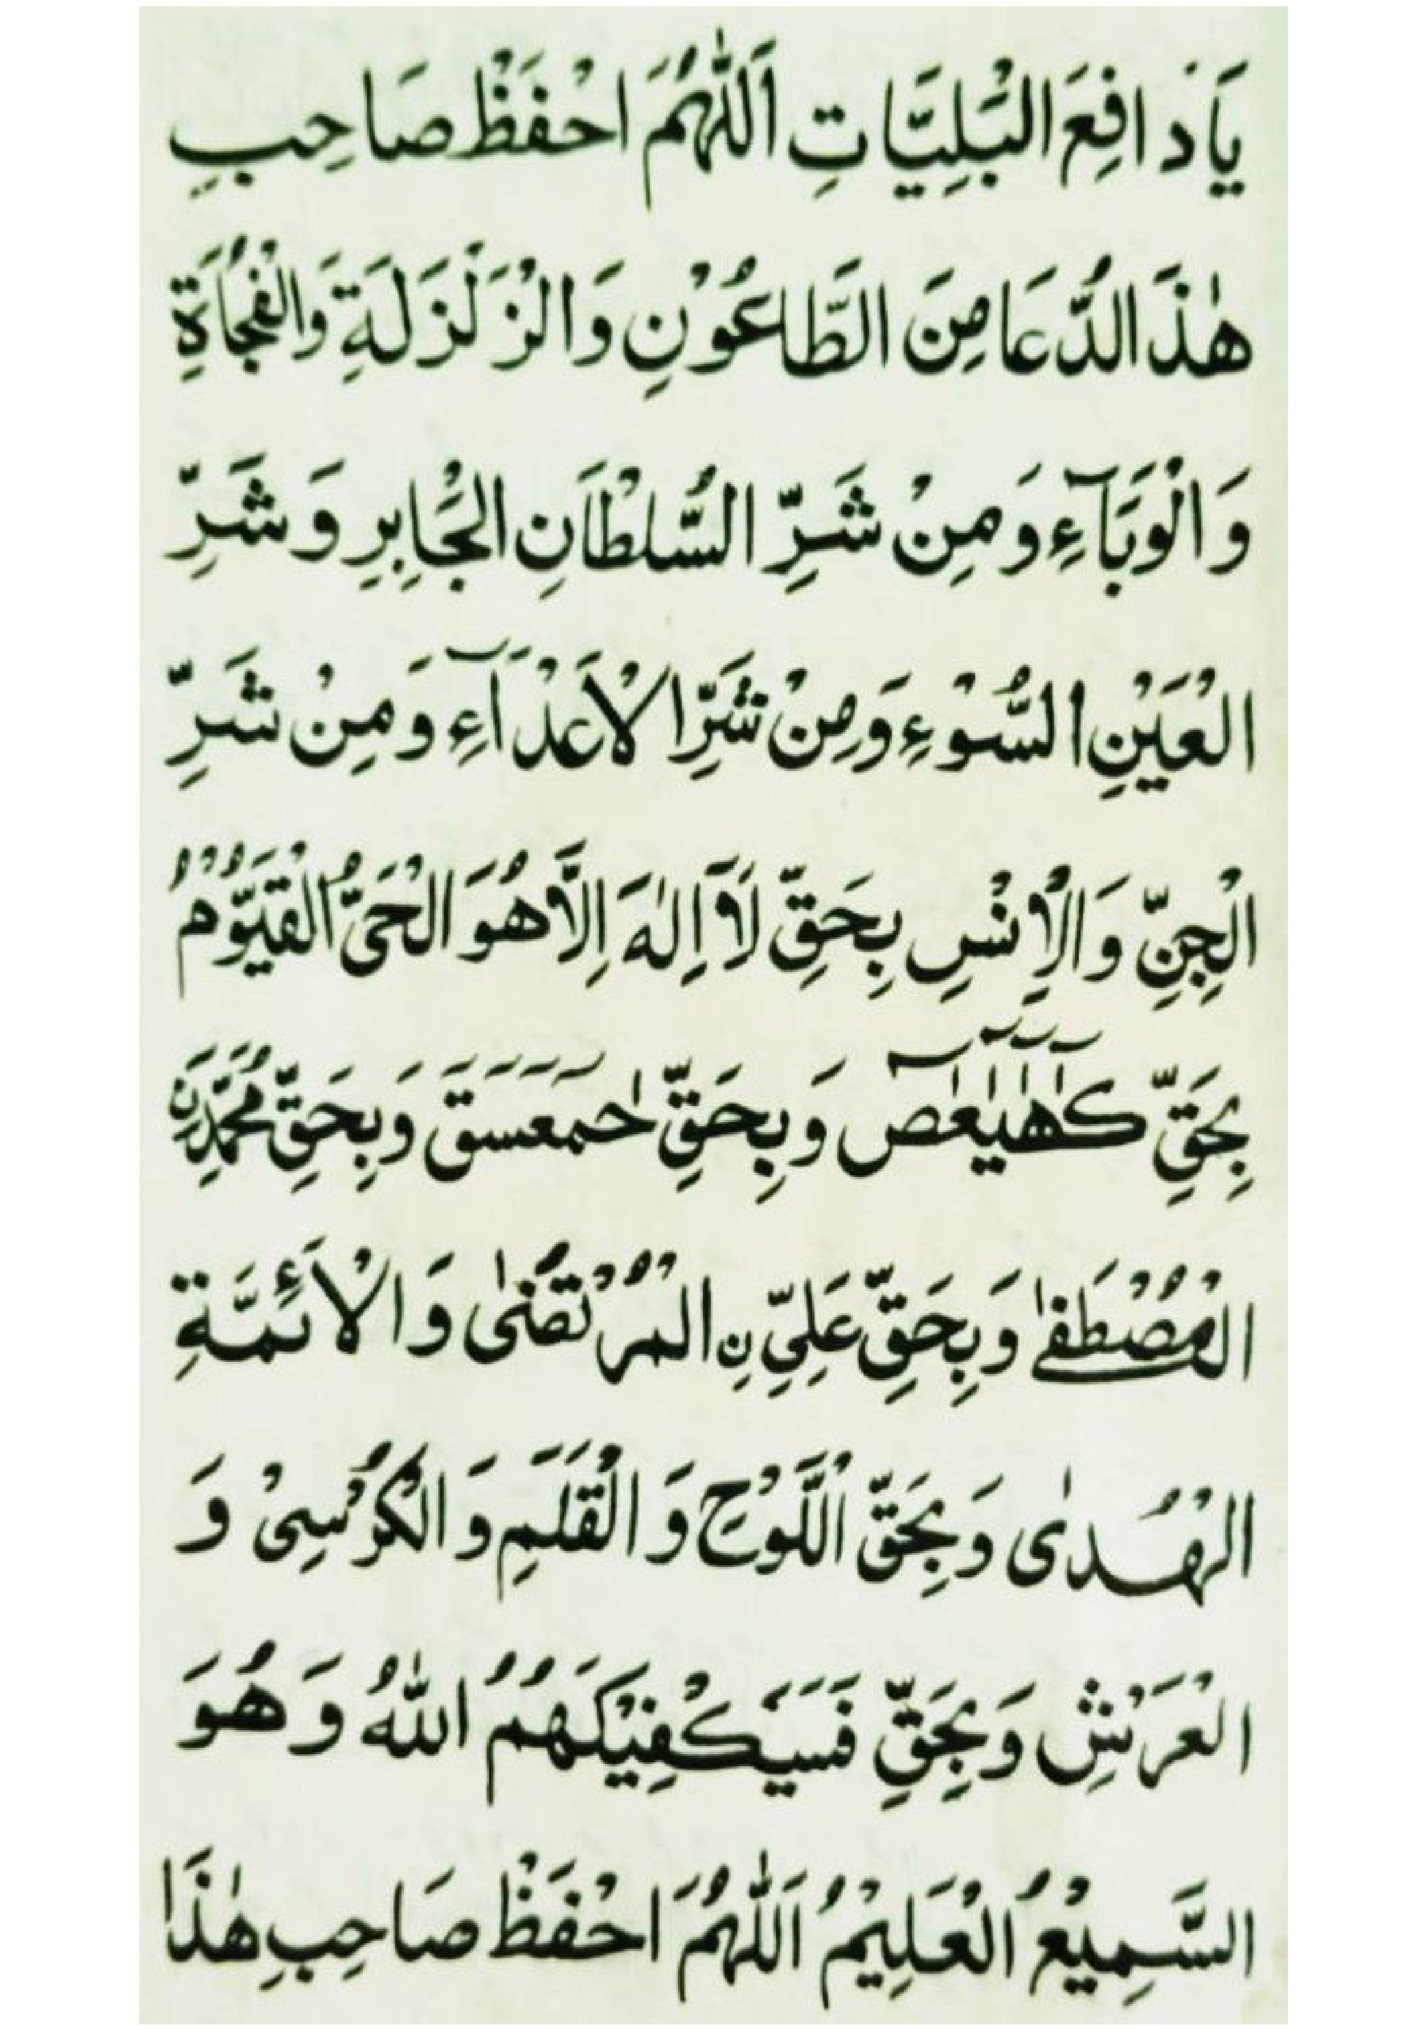 يَا دَافِعَ الْبَلِيَّاتِ اَللّٰهُمَّ احْفَظْ صَاحِبِ
هٰذَ الدُّعَا مِنَ الطَّاعُوْنِ وَالزَلْزَلَةِ وَالْفُجَاَةِ
وَالْوَبَآءِ وَمِنْ شَرِّ السُّلْطَانِ الْجَابِرِ وَشَرِّ
الْعَيْنِ السُّوْءِ وَمِنْ شَرِّ الْاَعْدَآءِ وَمِنْ شَرِّ
الْجِنِّ وَالْاِنْسِ بِحَقِّ لَآ اِلٰهَ اِلَّا هُوَ الْحَىُّ الْقَيُّوْمُ
بِحَقِّ كٓهٰيٰعٓصٓ وَبِحَقِّ حٰمٓعٓسٓقٓ وَبِحَقِّ مُحَمَّدِنِ
الْمُصْطَفٰى وَبِحَقِّ عَلِيِّ نِ الْمُرْتَضٰى وَالْاَئِمَّةِ
الْهُدٰى وَبِحَقِّ اللَّوْحِ وَالْقَلَمِ وَالْكُرْسِىْ وَ
الْعَرْشِ وَبِحَقِّ فَسَيَكْفِيْكَهُمُ اللّٰهُ وَهُوَ
السَّمِيْعُ الْعَلِيْمُ اَللّٰهُمَّ احْفَظْ صَاحِبِ هٰذَا